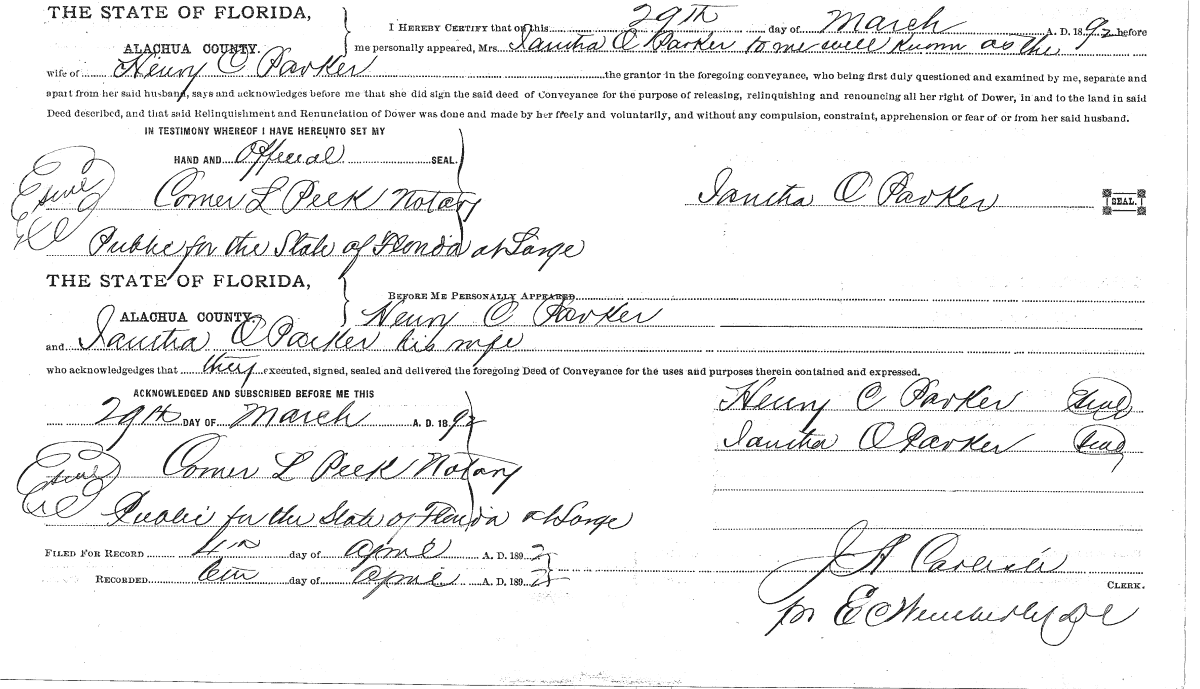 THE STATE OF FLORIDA,
ALACHUA COUNTY.
I HEREBY CERTIFY that on this 29th day of March A. D. 1892 before
me personally appeared, Mrs. Iantha O Parker to me well known as the
wife of Henry C Parker the grantor in the foregoing conveyance, who being first duly questioned and examined by me, separate and
apart from her said husband, says and acknowledges before me that she did sign the said deed of Conveyance for the purpose of releasing, relinquishing and renouncing all her right of Dower, in and to the land in said
Deed described, and that said Relinquishment and Renunciation of Dower was done and made by her freely and voluntarily, and without any compulsion, constraint, apprehension or fear of or from her said husband.
IN TESTIMONY WHEREOF I HAVE HEREUNTO SET MY
HAND AND Official SEAL.
Comer L Peek Notary
Iantha O Parker SEAL.
Public for the State of Florida at Large
THE STATE OF FLORIDA,
ALACHUA COUNTY.
BEFORE ME PERSONALLY APPEARED
Henry C Parker
and Iantha O Parker his wife
who acknowledges that they executed, signed, sealed and delivered the foregoing Deed of Conveyance for the uses and purposes therein contained and expressed.
ACKNOWLEDGED AND SUBSCRIBED BEFORE ME THIS
29th DAY OF March A. D. 1892
Henry C Parker Seal
Iantha O Parker Seal
Comer L Peek Notary
Public for the State of Florida at Large
FILED FOR RECORD 4th day of April A. D. 1892
RECORDED day of April A. D. 1892
J A Carlisle
CLERK.
per E C Wimberly DC